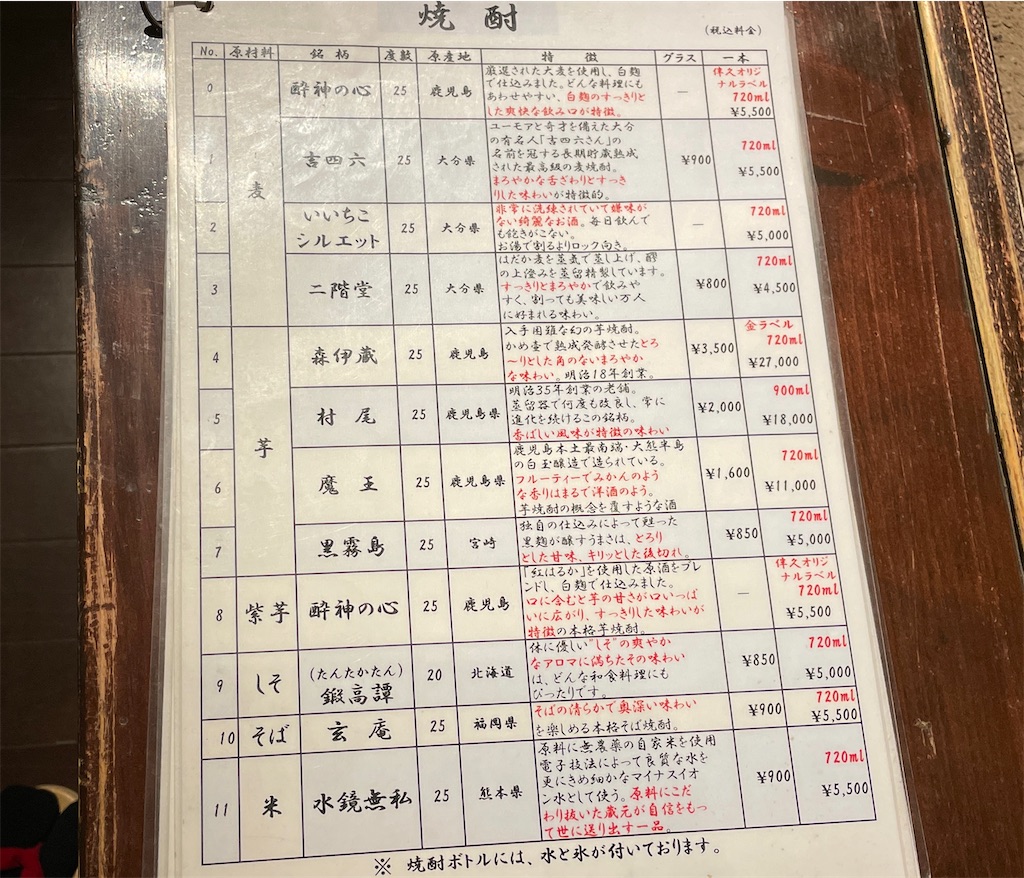 焼酎
(税込料金)
No. 原材料 銘柄 度数 原産地 特徴 グラス 一本
0 酔神の心 25 鹿児島
厳選された大麦を使用し、白麹
で仕込みました。どんな料理にも
あわせやすい、白麹のすっきりと
した爽快な飲み口が特徴。
—
俥久オリジ
ナルラベル
720ml
¥5,500
麦
1 吉四六 25 大分県
ユーモアと奇才を備えた大分
の有名人「吉四六さん」の
名前を冠する長期貯蔵熟成
された最高級の麦焼酎。
まろやかな舌ざわりとすっき
りした味わいが特徴的。
¥900
720ml
¥5,500
2 いいちこ
シルエット 25 大分県
非常に洗練されていて嫌味が
ない綺麗なお酒。毎日飲んで
も飽きがこない。
お湯で割るよりロック向き。
—
720ml
¥5,000
3 二階堂 25 大分県
はだか麦を蒸気で蒸し上げ、醪
の上澄みを蒸留精製しています。
すっきりとまろやかで飲みや
すく、割っても美味しい万人
に好まれる味わい。
¥800
720ml
¥4,500
芋
4 森伊蔵 25 鹿児島
入手困難な幻の芋焼酎。
かめ壺で熟成発酵させたとろ
〜りとした角のないまろやか
な味わい。明治18年創業。
¥3,500
金ラベル
720ml
¥27,000
5 村尾 25 鹿児島県
明治35年創業の老舗。
蒸留器で何度も改良し、常に
進化を続けるこの銘柄。
香ばしい風味が特徴の味わい
¥2,000
900ml
¥18,000
6 魔王 25 鹿児島県
鹿児島本土最南端・大熊半島
の白玉醸造で造られている。
フルーティーでみかんのよう
な香りはまるで洋酒のよう。
芋焼酎の概念を覆すような酒
¥1,600
720ml
¥11,000
7 黒霧島 25 宮崎
独自の仕込みによって甦った
黒麹が醸すうまさは、とろり
とした甘味、キリッとした後切れ。
¥850
720ml
¥5,000
8 紫芋 酔神の心 25 鹿児島
「紅はるか」を使用した原酒をブレ
ンドし、白麹で仕込みました。
口に含むと芋の甘さが口いっぱ
いに広がり、すっきりした味わいが
特徴の本格芋焼酎。
—
俥久オリジ
ナルラベル
720ml
¥5,500
9 しそ (たんたかたん)
鍛高譚 20 北海道
体に優しい"しそ"の爽やか
なアロマに満ちたその味わい
は、どんな和食料理にも
ぴったりです。
¥850
720ml
¥5,000
10 そば 玄庵 25 福岡県
そばの清らかで奥深い味わい
を楽しめる本格そば焼酎。
¥900
720ml
¥5,500
11 米 水鏡無私 25 熊本県
原料に無農薬の自家米を使用
電子技法によって良質な水を
更にきめ細かなマイナスイオ
ン水として使う。原料にこだ
わり抜いた蔵元が自信をもっ
て世に送り出す一品。
¥900
720ml
¥5,500
※ 焼酎ボトルには、水と氷が付いております。